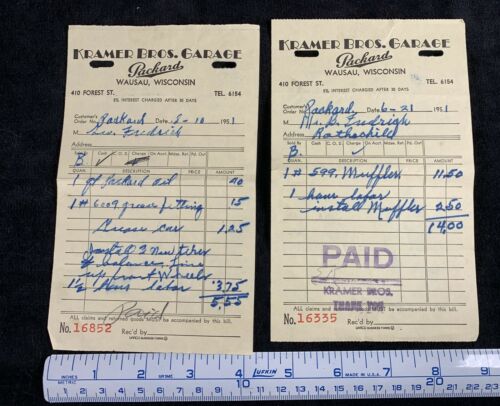 KRAMER BROS. GARAGE
Packard
WAUSAU, WISCONSIN
410 FOREST ST. TEL. 6154
8% INTEREST CHARGED AFTER 30 DAYS
Customer's Order No. Packard Date 5-10 1951
M Leo Fredrich
Address
Sold By Cash C.O.D. Charge On Acct. Mdse. Ret. Pd. Out
B
QUAN. DESCRIPTION PRICE AMOUNT
1 qt Packard oil 40
1 # 6009 grease fitting 15
Grease car 1.25
Install 2 New tires
& balance, line
up front Wheels
1 1/2 Hours labor 3.75
5.55
Paid
ALL claims and returned goods MUST be accompanied by this bill.
No. 16852 Rec'd by
KRAMER BROS. GARAGE
Packard
WAUSAU, WISCONSIN
410 FOREST ST. TEL. 6154
8% INTEREST CHARGED AFTER 30 DAYS
Customer's Order No. Packard Date 6-21 1951
M
Address Rothschild
Sold By Cash C.O.D. Charge On Acct. Mdse. Ret. Pd. Out
B.
QUAN. DESCRIPTION PRICE AMOUNT
1 # 599 Muffler 11.50
1 hour labor
install Muffler 2.50
14.00
PAID
KRAMER BROS.
THANK YOU
ALL claims and returned goods MUST be accompanied by this bill.
No. 16335 Rec'd by
INCHES 1 2 3 4 LUFKIN MADE IN U.S.A. 5 6 7 8
METRIC 10 20